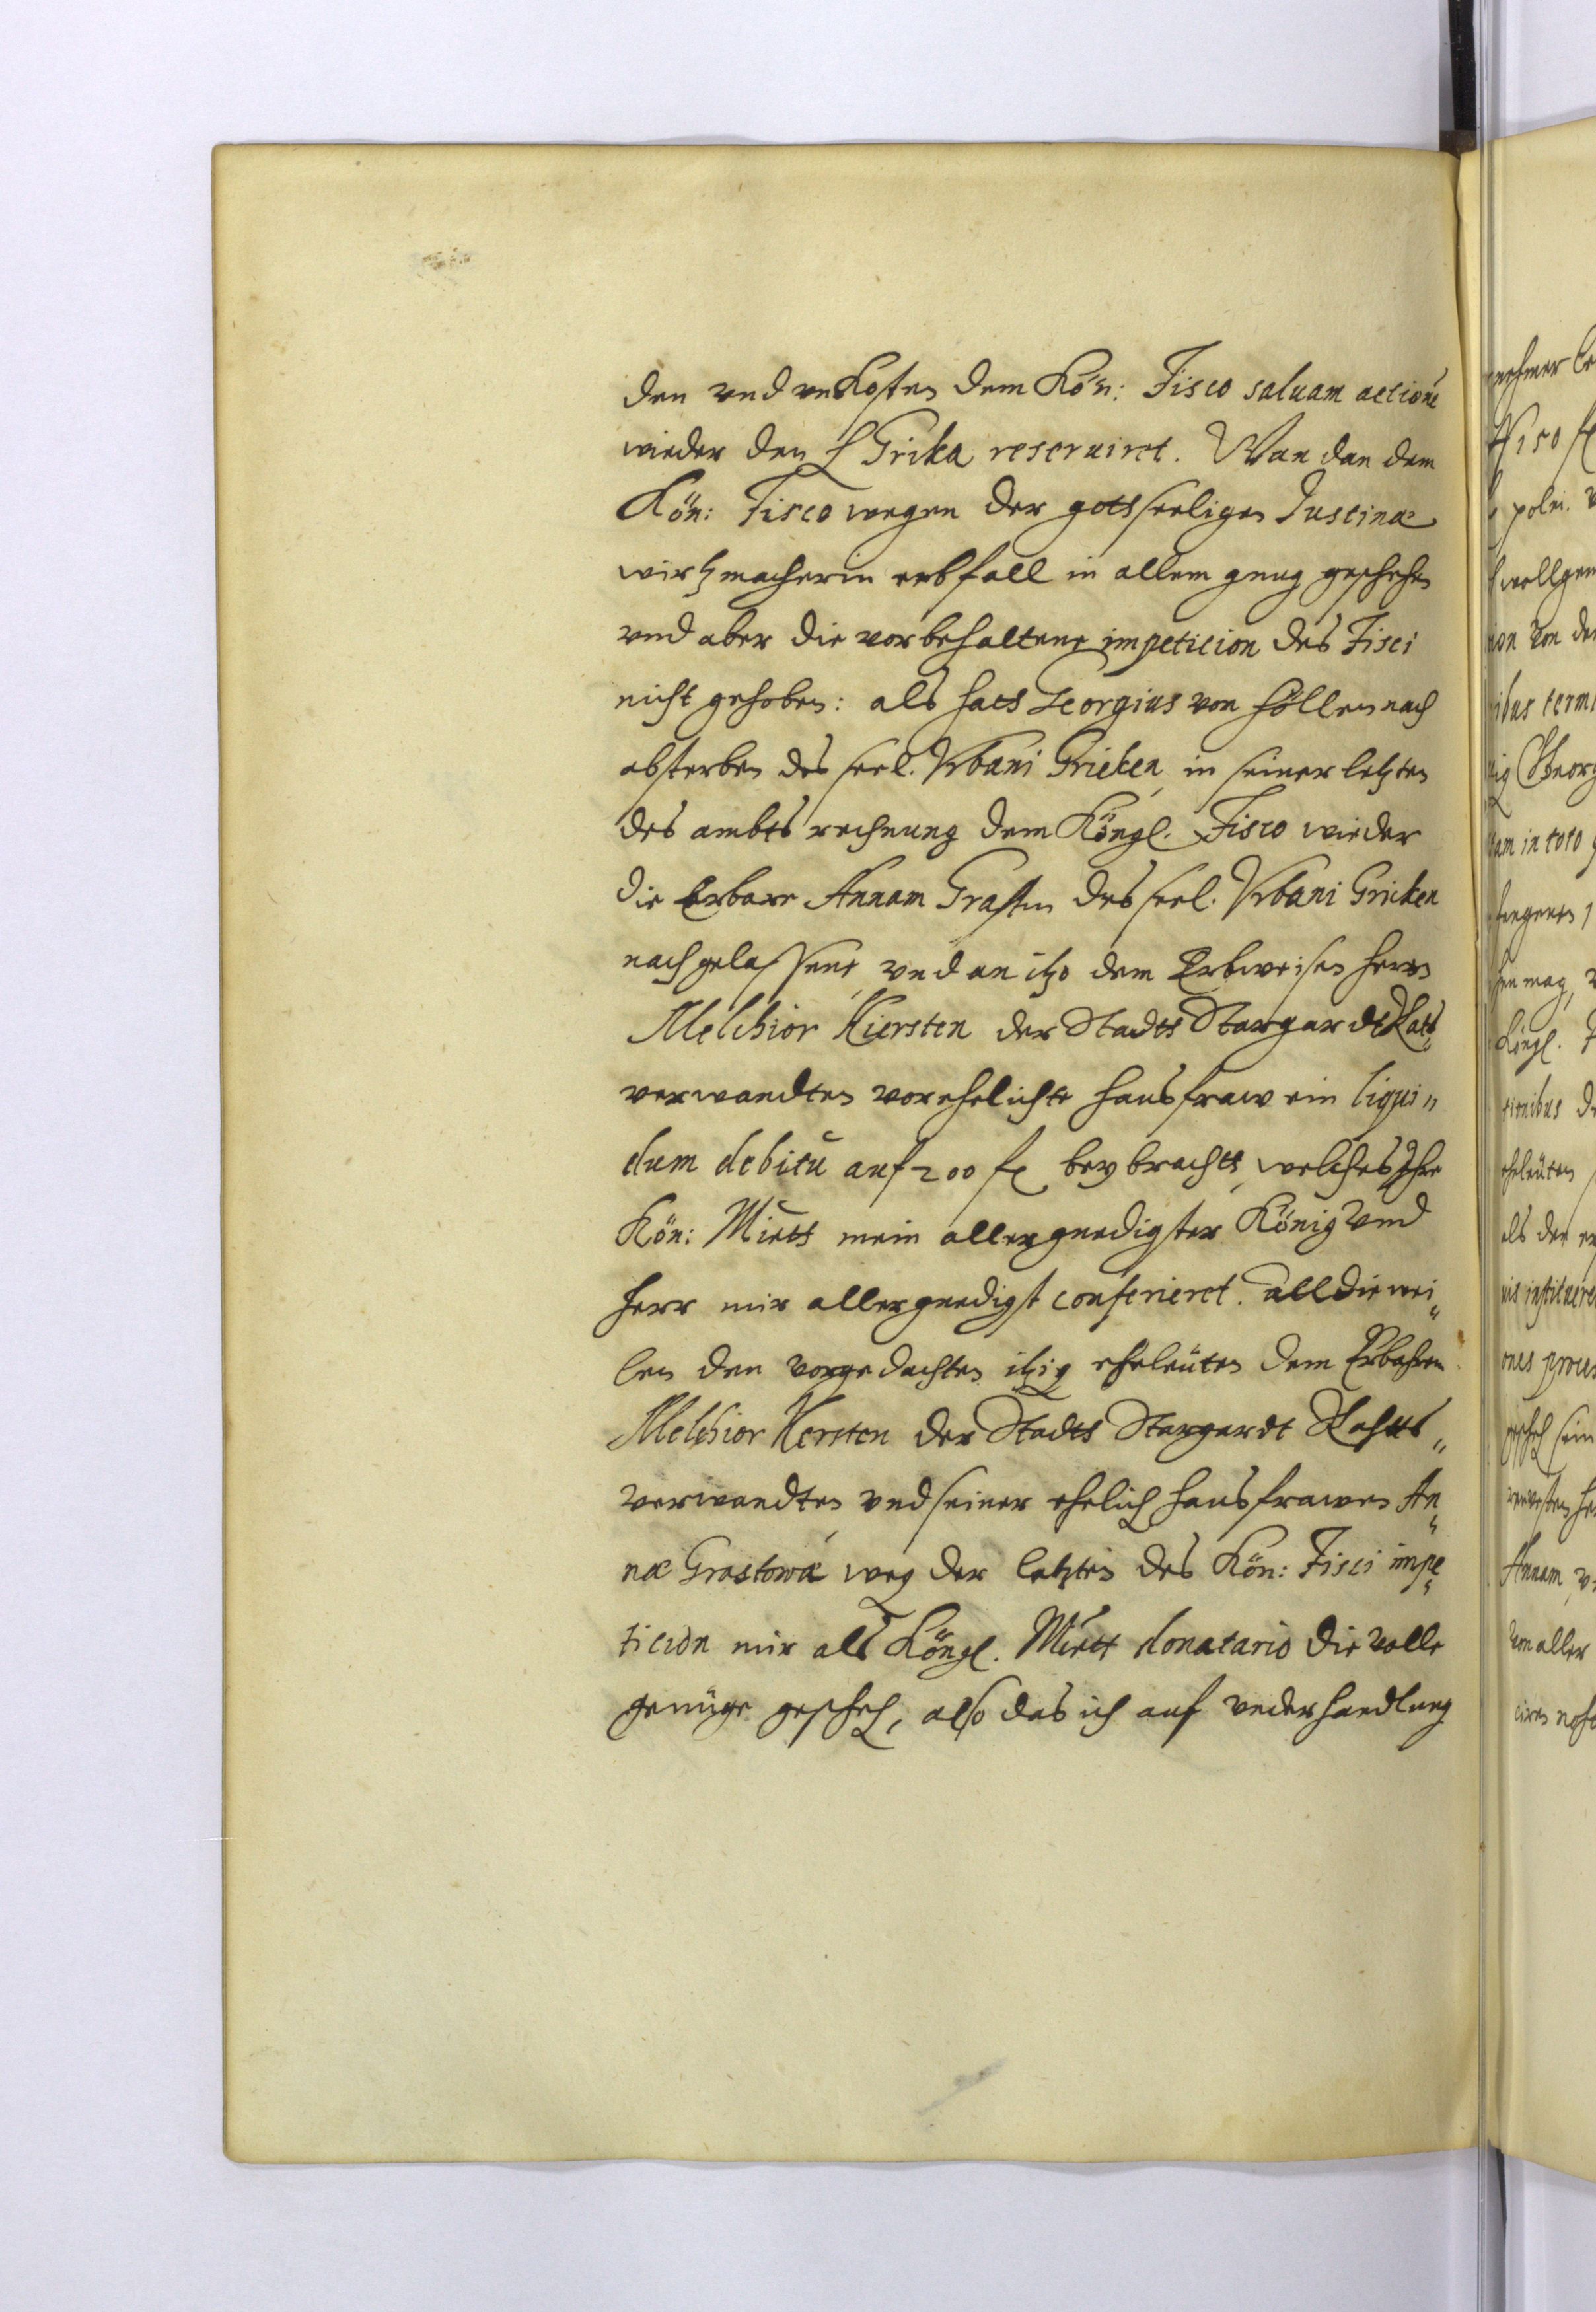 den vnd vnkosten dem Kön: Fisco saluam actionē
wieder den H Grika reseruiret. Wan dan dem
Kön: Fisco wegen der gottseeligen Justinæ
wirtzmacherin erbfall in allem gnug geschehen
vnd aber die vorbehaltene impeticion des Fisci
nicht gehoben: als hats Georgius von Höllen nach
absterben des seel. Vrbani Grieken, in seiner letzten
des ambts rechnung dem Köngl. Fisco wieder
die Erbare Annam des seel. Vrbani Gricken
nachgelassene, vnd an itzo dem Erbweisen herrn
Melchior Kiersten der Stadts Stargardt Rats
verwandten vorehelichte hausfraw ein liqui"
dum debitū auf 200 fl beybracht, welches Ihre
Kön: Mäets mein allergnedigster König vnd
herr mir allergnedigst conferieret. alldiewei"
len den vorgedachten itzig eheleüten dem Erbahren
Melchior Kersten der Stadts Stargardt Rahtts"
verwandten, vnd seiner ehelich hausfrawen An"
næ Grastowæ weg der letzten des Kön: Fisci impe"
ticion mir als Köngl. Mäett donatario die volle
genüge gescheh, also das ich auf vnderhandlung